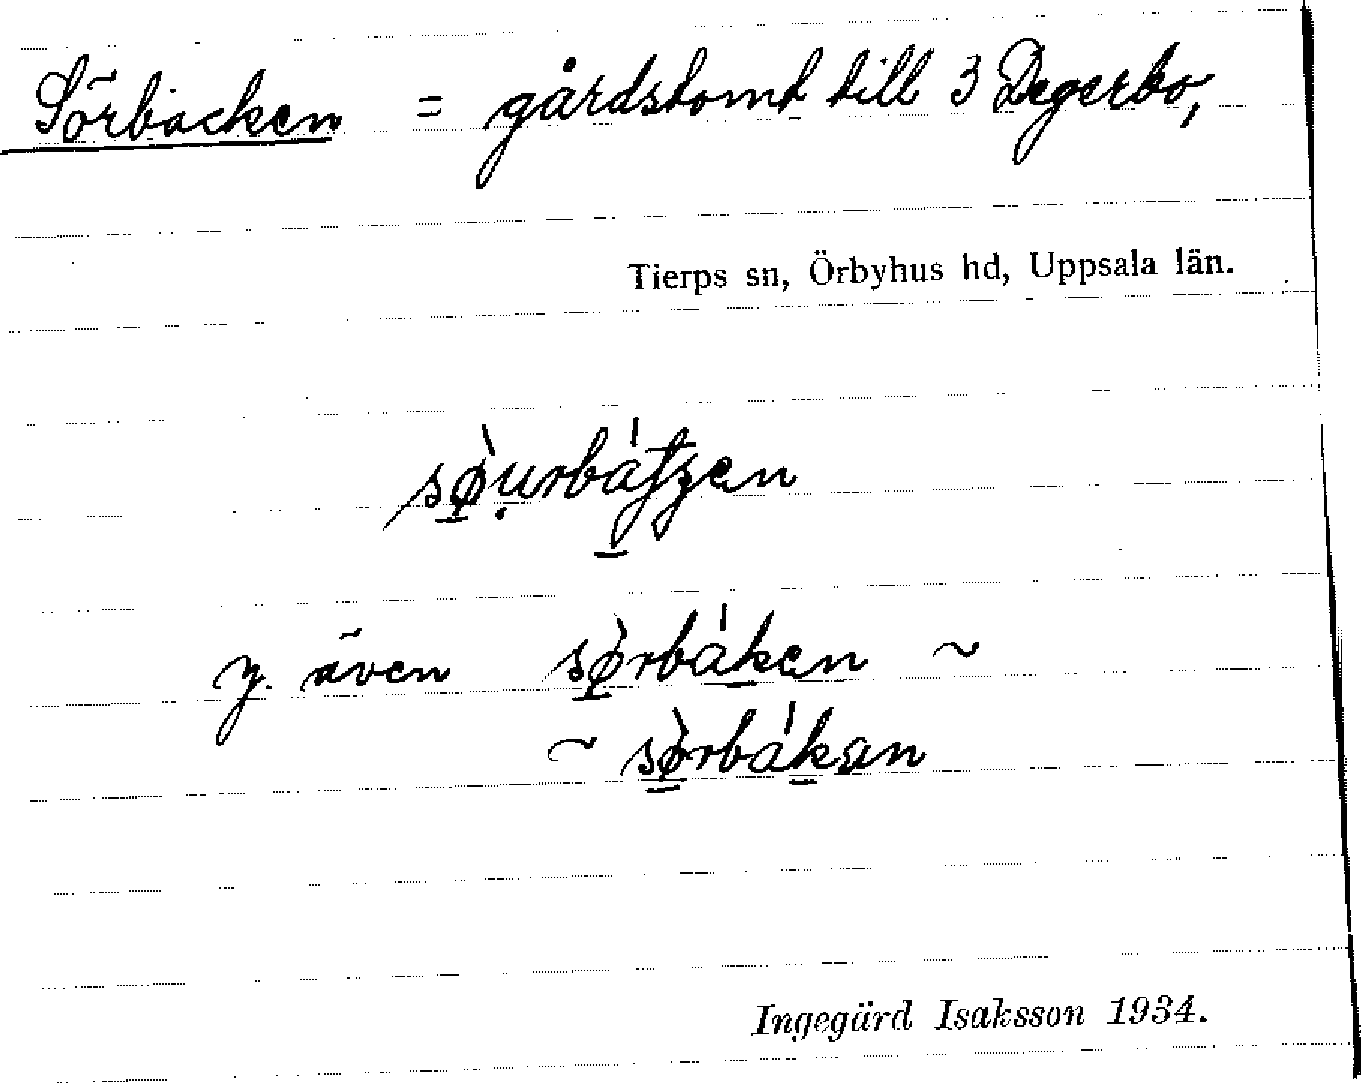 Sörbacken = gårdstomt till 3 Degerbo,
Tierps sn, Örbyhus hd, Uppsala län.
y. även sø̠̀rbák̠en ~
~ sø̠̀rbák̠ən
Ingegärd Isaksson 1934.